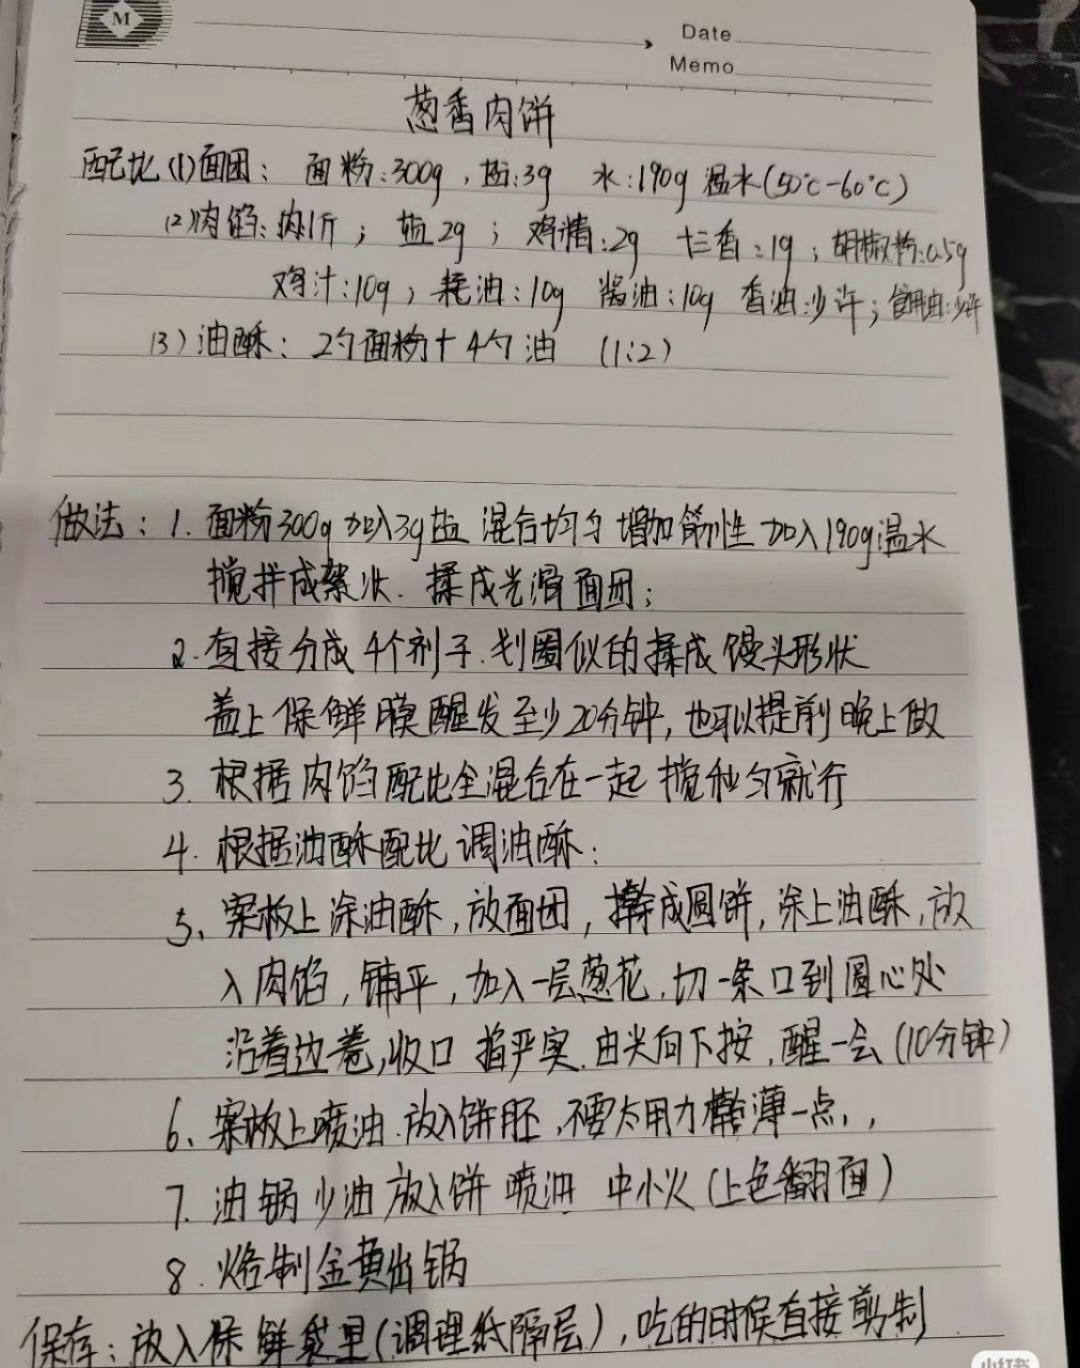 M
Date
Memo
葱香肉饼
配比(1)面团：面粉:300g，盐:3g 水:190g 温水(50℃-60℃)
(2)肉馅:肉1斤；盐2g；鸡精:2g 十三香:1g；胡椒粉:0.5g
鸡汁:10g；耗油:10g 酱油:10g 香油:少许；食用油:少许
(3)油酥：2勺面粉+4勺油 (1:2)
做法：1. 面粉300g加入3g盐 混合均匀 增加筋性 加入190g温水
搅拌成絮状. 揉成光滑面团；
2. 直接分成4个剂子.划圈似的揉成馒头形状
盖上保鲜膜醒发至少20分钟,也可以提前晚上做
3. 根据肉馅配比全混合在一起 搅和匀就行
4. 根据油酥配比 调油酥：
5、案板上涂油酥,放面团，擀成圆饼,涂上油酥,放
入肉馅,铺平,加入一层葱花.切一条口到圆心处
沿着边卷,收口 捏严实.由尖向下按.醒一会(10分钟)
6、案板上喷油.放入饼胚,不要太用力擀薄一点,,
7. 油锅少油放入饼 喷油 中小火(上色翻面)
8. 烙制金黄出锅
保存：放入保鲜袋里(调理纸隔层),吃的时候直接剪制
小红书